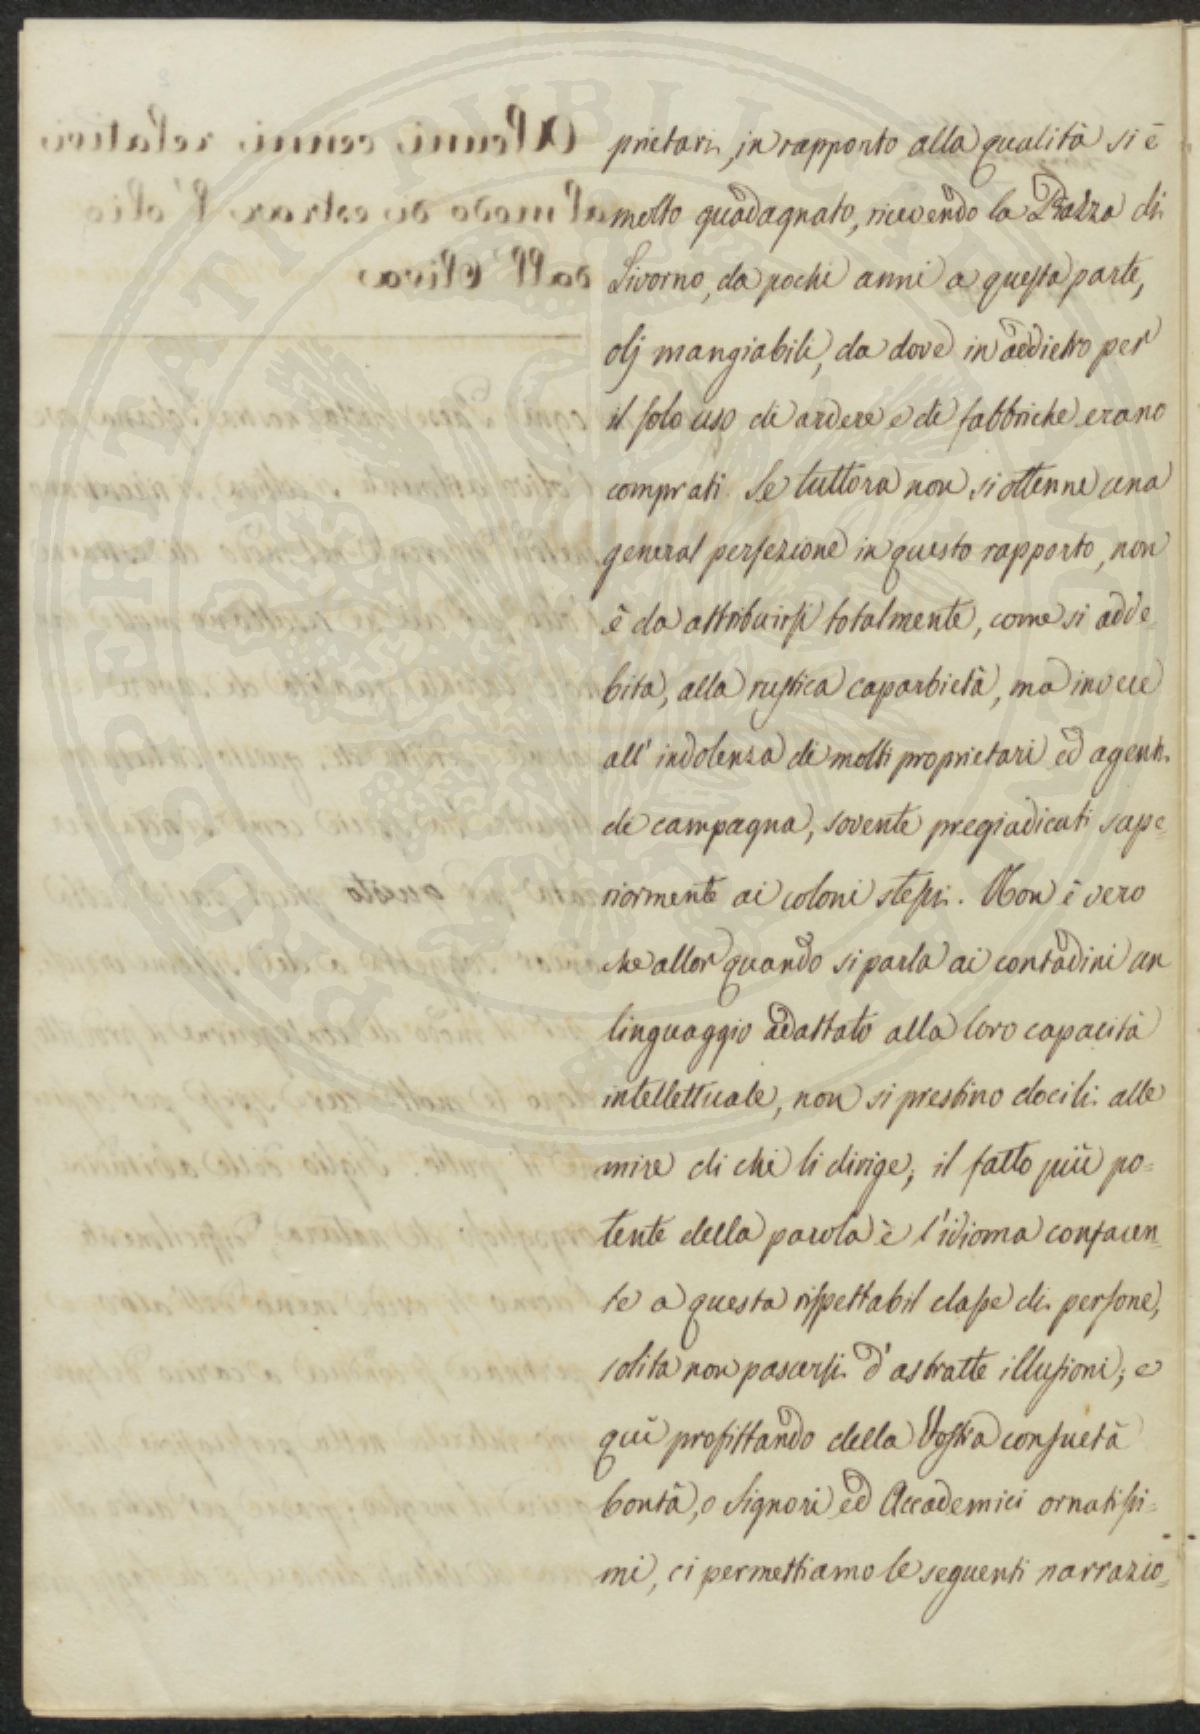 prietari, in rapporto alla qualità si è
molto guadagnato, ricevendo la Piazza di
Livorno, da pochi anni a questa parte,
olj mangiabili, da dove in addietro per
il solo uso di ardere e di fabbriche erano
comprati. Se tuttora non si ottenne una
general perfezione in questo rapporto, non
è da attribuirsi totalmente, come si adde-
bita, alla rustica caparbietà, ma invece
all' indolenza di molti proprietari ed agenti
di campagna, sovente pregiudicati supe-
riormente ai coloni stessi. Non è vero
che allor quando si parla ai contadini un
linguaggio adattato alla loro capacità
intellettuale, non si prestino docili alle
mire di chi li dirige; il fatto più po=
tente della parola è l'idioma confacen-
te a questa rispettabil classe di persone,
solita non pascersi d'astratte illusioni; e
quì profittando della Vostra consueta
bontà, o Signori ed Accademici ornatissi=
mi, ci permettiamo le seguenti narrazio=